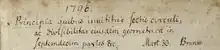 1796.
Principia quibus innititur sectio circuli,
ac divisibilitas eiusdem geometrica in
septemdecim partes &c. Mart. 30. Brunsv.